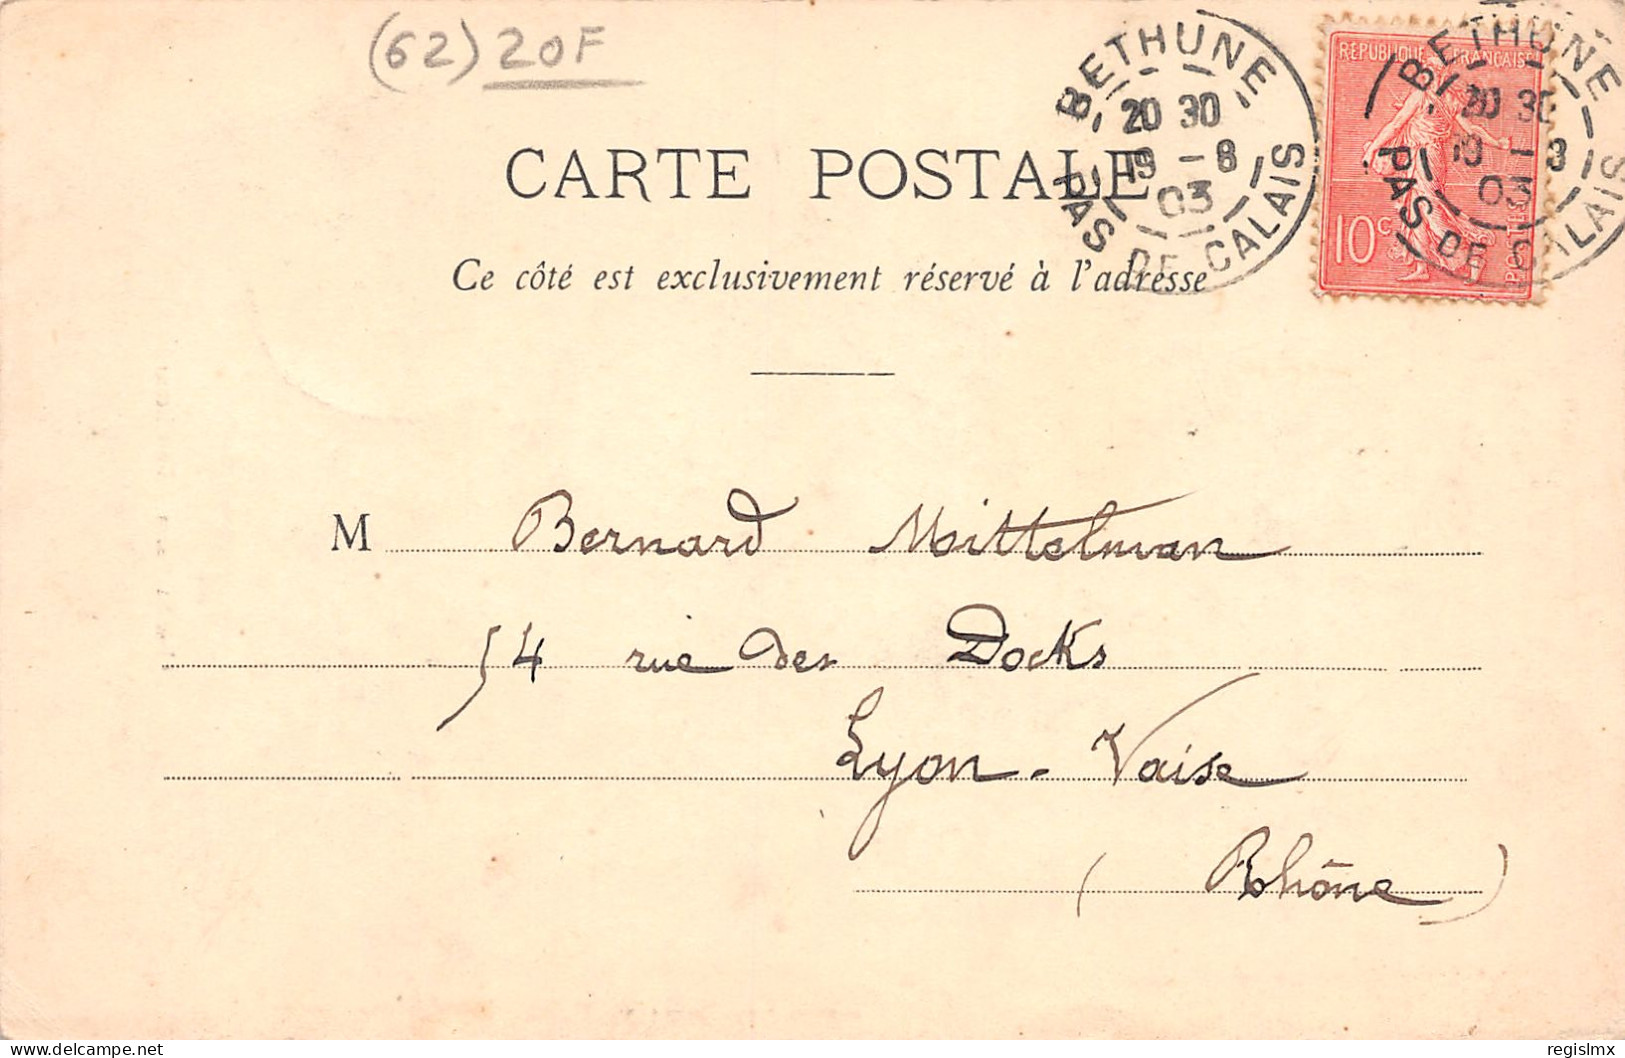 (62) 20F
BETHUNE
20 30
19 - 8
03
PAS DE CALAIS
REPUBLIQUE FRANÇAISE
10c
POSTES
BETHUNE
30
03
PAS DE CALAIS
CARTE POSTALE
Ce côté est exclusivement réservé à l'adresse
M Bernard Mittelman
54 rue des Docks
Lyon - Vaise
(Rhône)
delcampe.net
regislmx